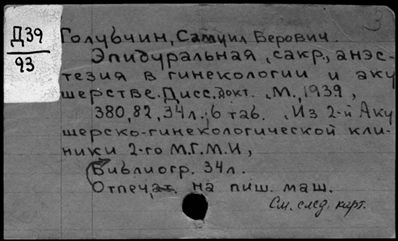 Д39
93
3
Голубчин, Самуил Берович.
Эпидуральная, сакр., анэс-
тезия в гинекологии и аку
шерстве. Дисс. Докт. М., 1939,
380, 82, 34 л.; 6 таб. Из 2-й Аку
шерско-гинекологической кли-
ники 2-го М.Г.М.И,
Библиогр. 34 л.
Отпечат. на пиш. маш.
См. след. карт.